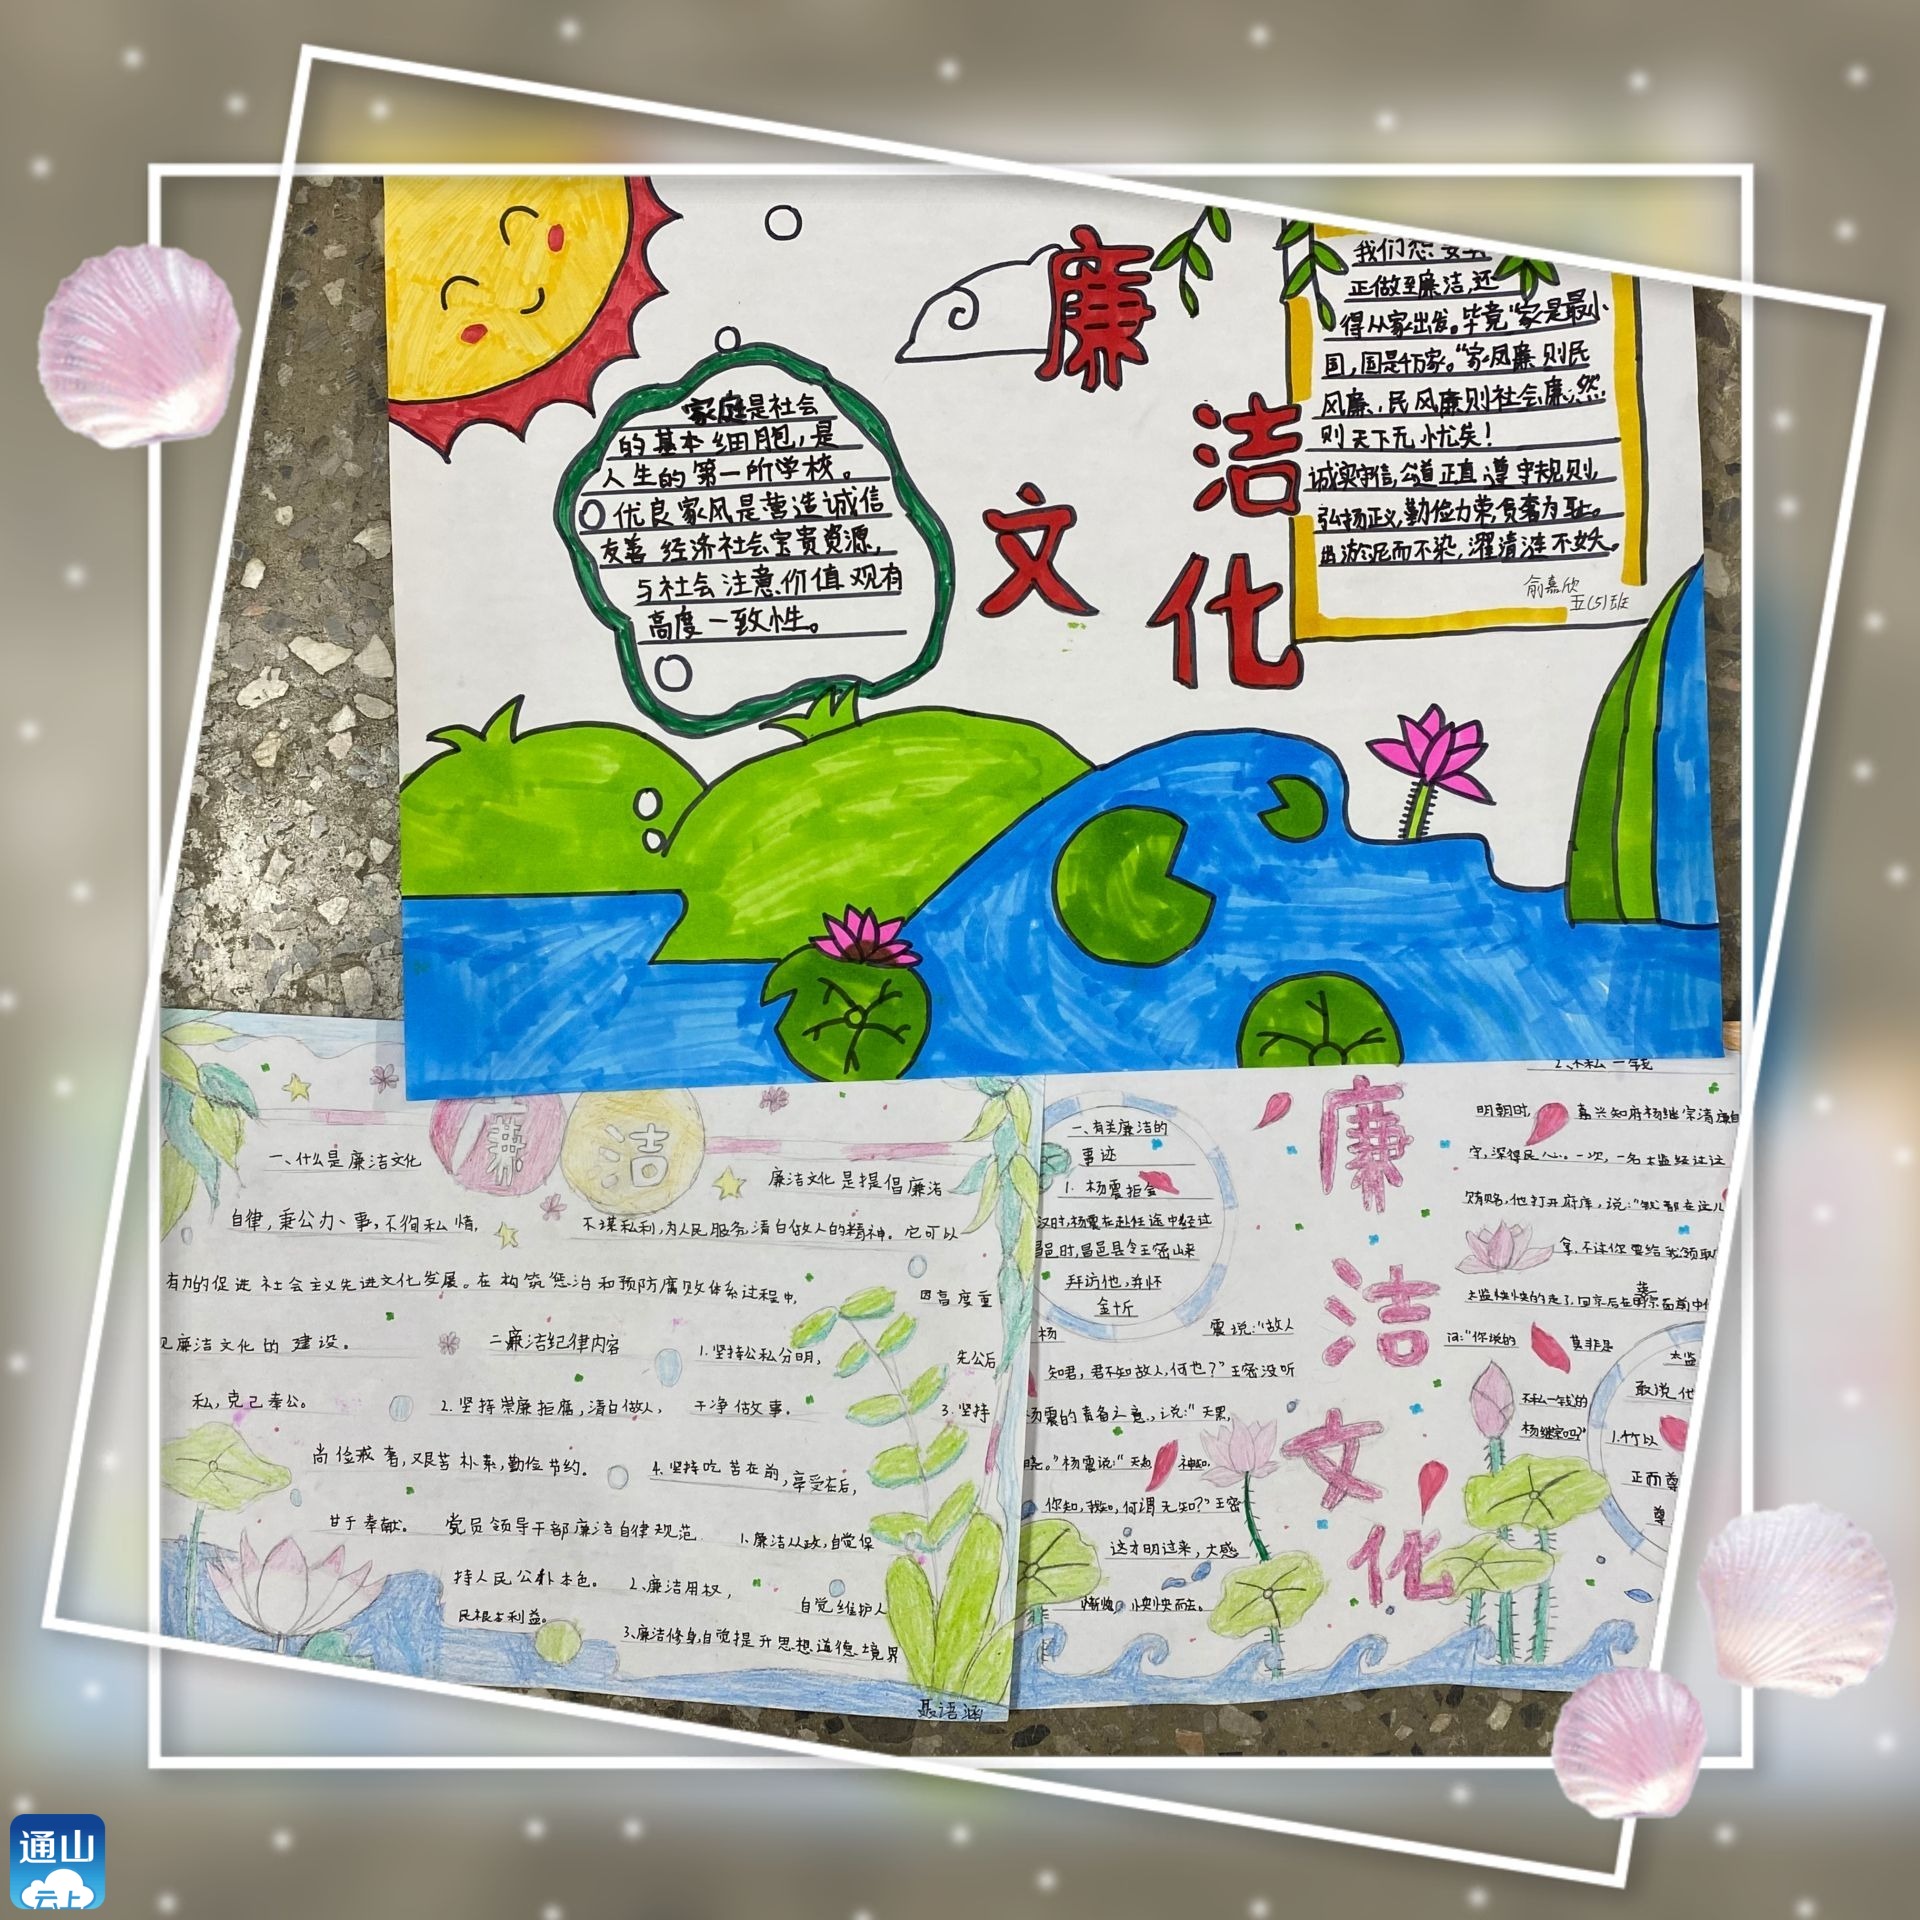 廉洁文化
家庭是社会
的基本细胞，是
人生的第一所学校。
优良家风是营造诚信
友善 经济社会宝贵資源，
与社会 注意价值观有
高度一致性。
正做至廉洁，还
得从家出发。毕竟“家是最小
国，国是千万家。“家风廉则民
风廉，民风廉则社会廉，然
则天下无忧矣！
诚实守信，公道正直，遵守规则，
弘扬正义，勤俭力荣，贪奢为耻。
出淤泥而不染，濯清涟不妖。
俞嘉欣
五(5)班
廉洁
一、什么是廉洁文化
廉洁文化是提倡廉洁
自律，秉公办事，不徇私情，
不谋私利，为人民服务，清白做人的精神。它可以
有力的促进社会主义先进文化发展。在构筑惩治和预防腐败体系过程中，
因高度重
见廉洁文化的建设。
二廉洁纪律内容
1.坚持公私分明，
先公后
私，克己奉公。
2.坚持崇廉拒腐，清白做人，
干净做事。
3.坚持
尚俭戒奢，艰苦朴素，勤俭节约。
4.坚持吃苦在前，享受在后，
甘于奉献。
党员领导干部廉洁自律规范
1.廉洁从政，自觉保
持人民公仆本色。
2.廉洁用权，
自觉维护人
民根本利益。
3.廉洁修身，自觉提升思想道德境界
聂语涵
廉洁文化
一、有关廉洁的
事迹
1.杨震拒金
汉时，杨震在赴任途中经过
昌邑时，昌邑县令王密山来
拜访他，并怀
金十斤
杨
震说：“故人
知君，君不知故人，何也？”王密没听
杨震的责备之意，说：“天黑，
晓。”杨震说：“天知，神知，
你知，我知，何谓无知？”王密
这才明过来，大感
惭愧，怏怏而去。
2、不私一钱
明朝时，嘉兴知府杨继宗清廉自
守，深得民心。一次，一名太监经过这
贿赂，他打开府库，说：“钱都在这儿
拿，不过你要给我领取
问：“你说的
莫非是
不私一钱的
杨继宗吗？”
太监
敢说他
1.竹以
正而尊
尊
通山
云上